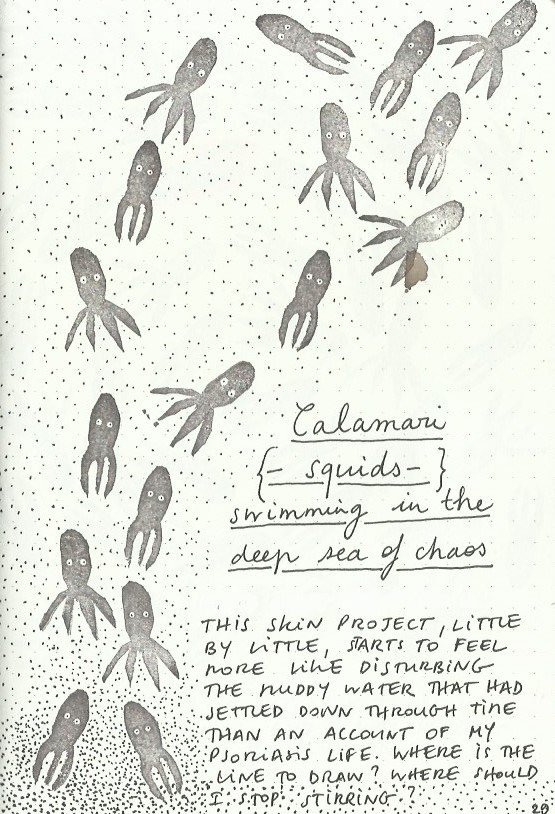 Calamari
{- squids-}
swimming in the
deep sea of chaos
THIS SKIN PROJECT, LITTLE
BY LITTLE, STARTS TO FEEL
MORE LIKE DISTURBING
THE MUDDY WATER THAT HAD
SETTLED DOWN THROUGH TIME
THAN AN ACCOUNT OF MY
PSORIASIS LIFE. WHERE IS THE
LINE TO DRAW? WHERE SHOULD
I STOP STIRRING?
29